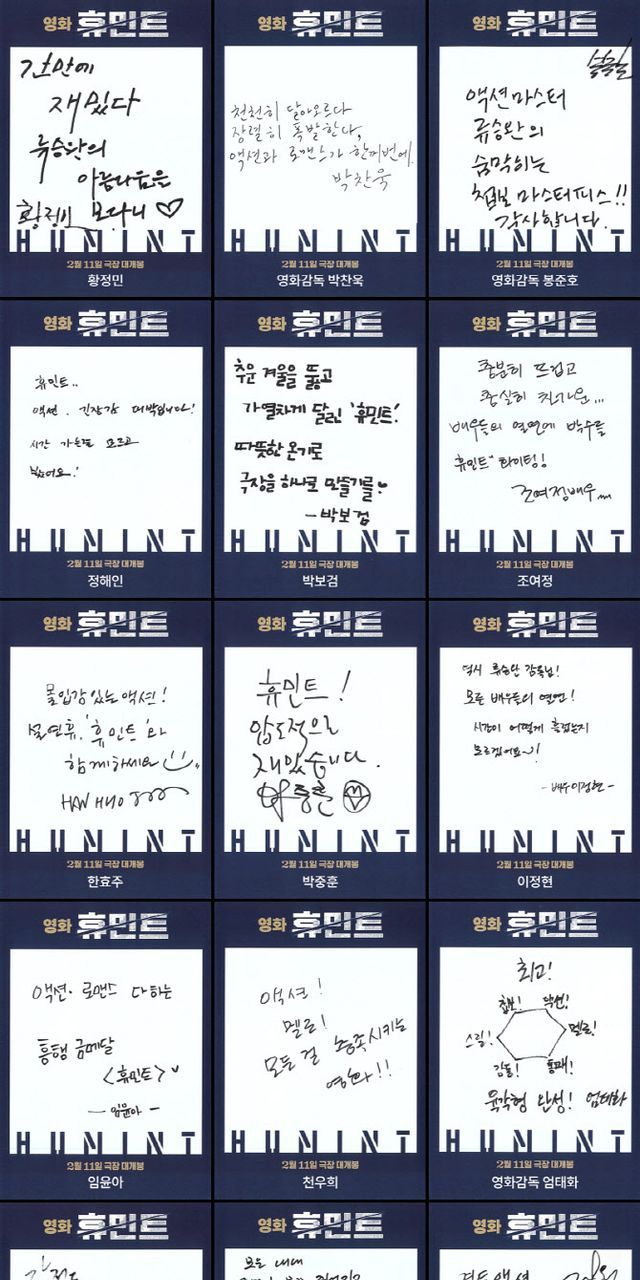 영화 휴민트
간만에
재밌다
류승완의
아름다움을
황정민 보다니
HUMINT
2월 11일 극장 대개봉
황정민
영화 휴민트
천천히 달아오르다
장렬히 폭발한다,
액션과 로맨스가 한꺼번에.
박찬욱
HUMINT
2월 11일 극장 대개봉
영화감독 박찬욱
영화 휴민트
액션마스터
류승완의
숨막히는
첩보 마스터피스!!
감사합니다.
HUMINT
2월 11일 극장 대개봉
영화감독 봉준호
영화 휴민트
휴민트..
액션. 긴장감 대박입니다!
시간 가는줄 모르고
봤어요!
HUMINT
2월 11일 극장 대개봉
정해인
영화 휴민트
추운 겨울을 뚫고
가열차게 달린 '휴민트'!
따뜻한 온기로
극장을 하나로 만들기를
-박보검
HUMINT
2월 11일 극장 대개봉
박보검
영화 휴민트
충분히 뜨겁고
충실히 차가운...
배우들의 열연에 박수를
휴민트" 화이팅!
조여정배우
HUMINT
2월 11일 극장 대개봉
조여정
영화 휴민트
몰입감있는 액션!
설연휴, '휴민트'와
함께하세요
HAN HYO JOO
HUMINT
2월 11일 극장 대개봉
한효주
영화 휴민트
휴민트!
압도적으로
재밌습니다.
박중훈
HUMINT
2월 11일 극장 대개봉
박중훈
영화 휴민트
역시 류승완 감독님!
모든 배우들의 열연!
시간이 어떻게 흘렀는지
모르겠어요~!
-배우이정현-
HUMINT
2월 11일 극장 대개봉
이정현
영화 휴민트
액션·로맨스 다하는
흥행 금메달
<휴민트>
- 임윤아 -
HUMINT
2월 11일 극장 대개봉
임윤아
영화 휴민트
액션!
멜로!
모든 걸 충족시키는
영화!!
HUMINT
2월 11일 극장 대개봉
천우희
영화 휴민트
최고!
첩보! 액션!
스릴! 멜로!
감동! 통쾌!
육각형 완성! 엄태화
HUMINT
2월 11일 극장 대개봉
영화감독 엄태화
영화 휴민트
영화 휴민트
영화 휴민트